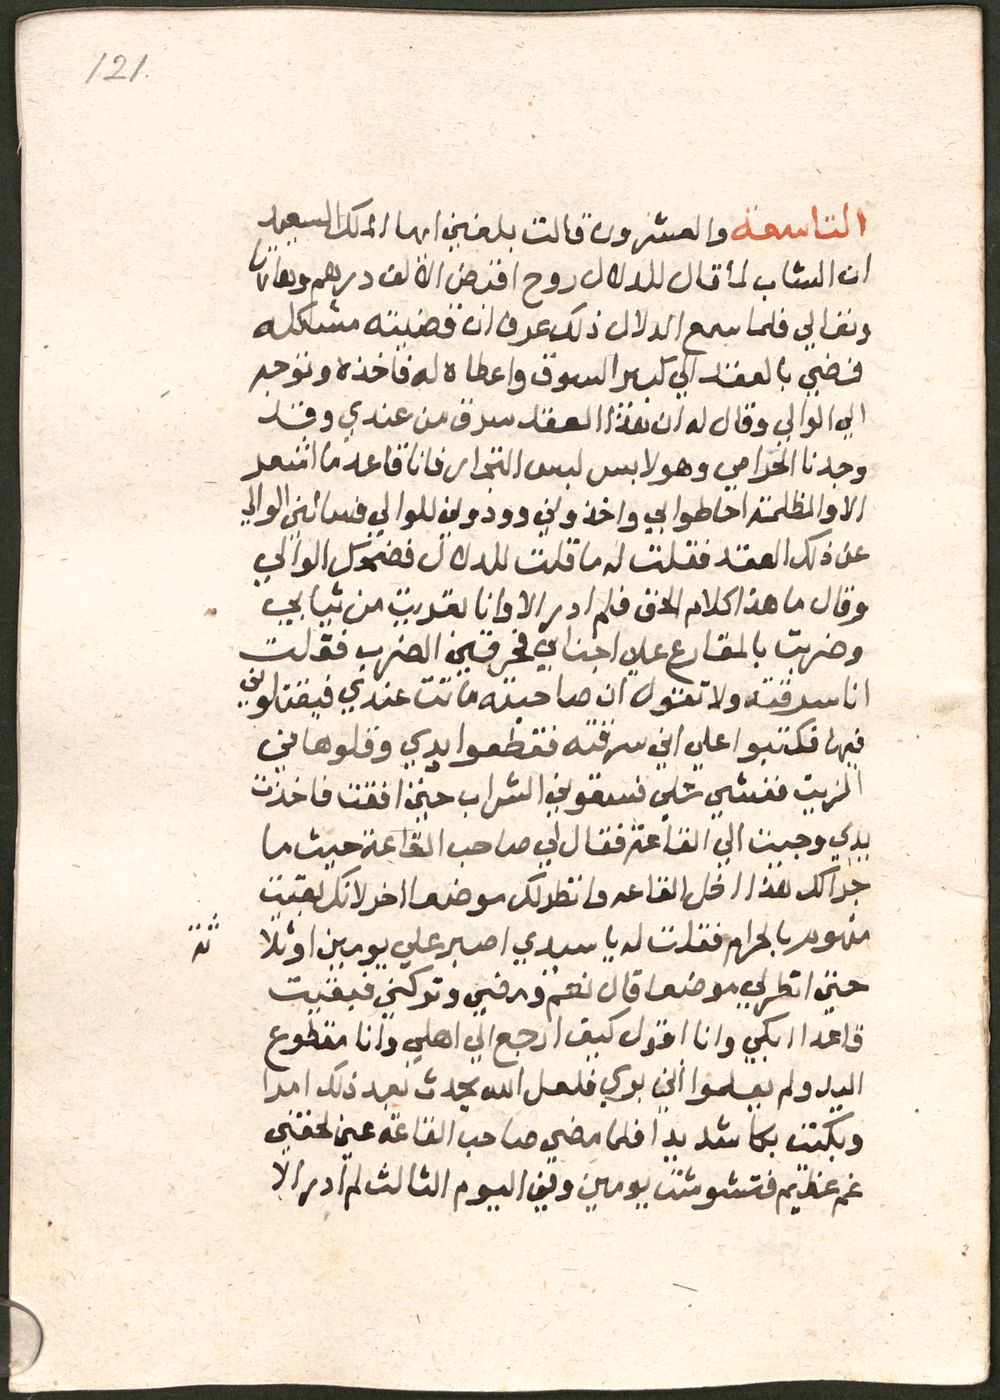 121.
التاسعة والعشرون قالت بلغني ايها الملك السعيد
ان الشاب لما قال للدلال روح اقبض الالف درهم وبقا تاتا
ونغالي فلما سمع الدلال ذلك عرف ان قضيته مشكله
فمضي بالعقد الي كبير السوق واعطاه له فاخذه وتوجه
الي الوالي وقال له ان هذا العقد سرق من عندي وقد
وجدنا الحرامي وهو لابس لبس التجار فانا قاعد ما اشعر
الا والظلمة احاطوا بي واخذوني وودوني للوالي فسالني الوالي
عن ذلك العقد فقلت له ما قلت للدلال فضحك الوالي
وقال ما هذا كلام الحق فلم ادر الا وانا تعريت من ثيابي
وضربت بالمقارع علي اجنابي فحرقني الضرب فقولت
انا سرقته ولا تقول ان صاحبته ماتت عندي فيقتلوني
فيها فكتبوا علي اني سرقته فقطعوا يدي وقلوها في
الزيت فغشي علي فسقوني الشراب حتي افقت فاخذت
يدي وجيت الي القاعة فقال لي صاحب القاعة حيث ما
جرا لك هذا ادخل القاعه وانظر لك موضعا اخر لانك بقيت
متهوم بالحرام فقلت له يا سيدي اصبر علي يومين او ثلا
ثة
حتي انظر لي موضعا قال نعم ومضي وتركني فبقيت
قاعدا ابكي وانا اقول كيف ارجع الي اهلي وانا مقطوع
اليد ولم يعلموا اني بري فلعل الله يحدث بعد ذلك امرا
وبكيت بكا شديدا فلما مضي صاحب القاعة عني لحقني
غم عظيم فتشوشت يومين وفي اليوم الثالث لم ادر الا